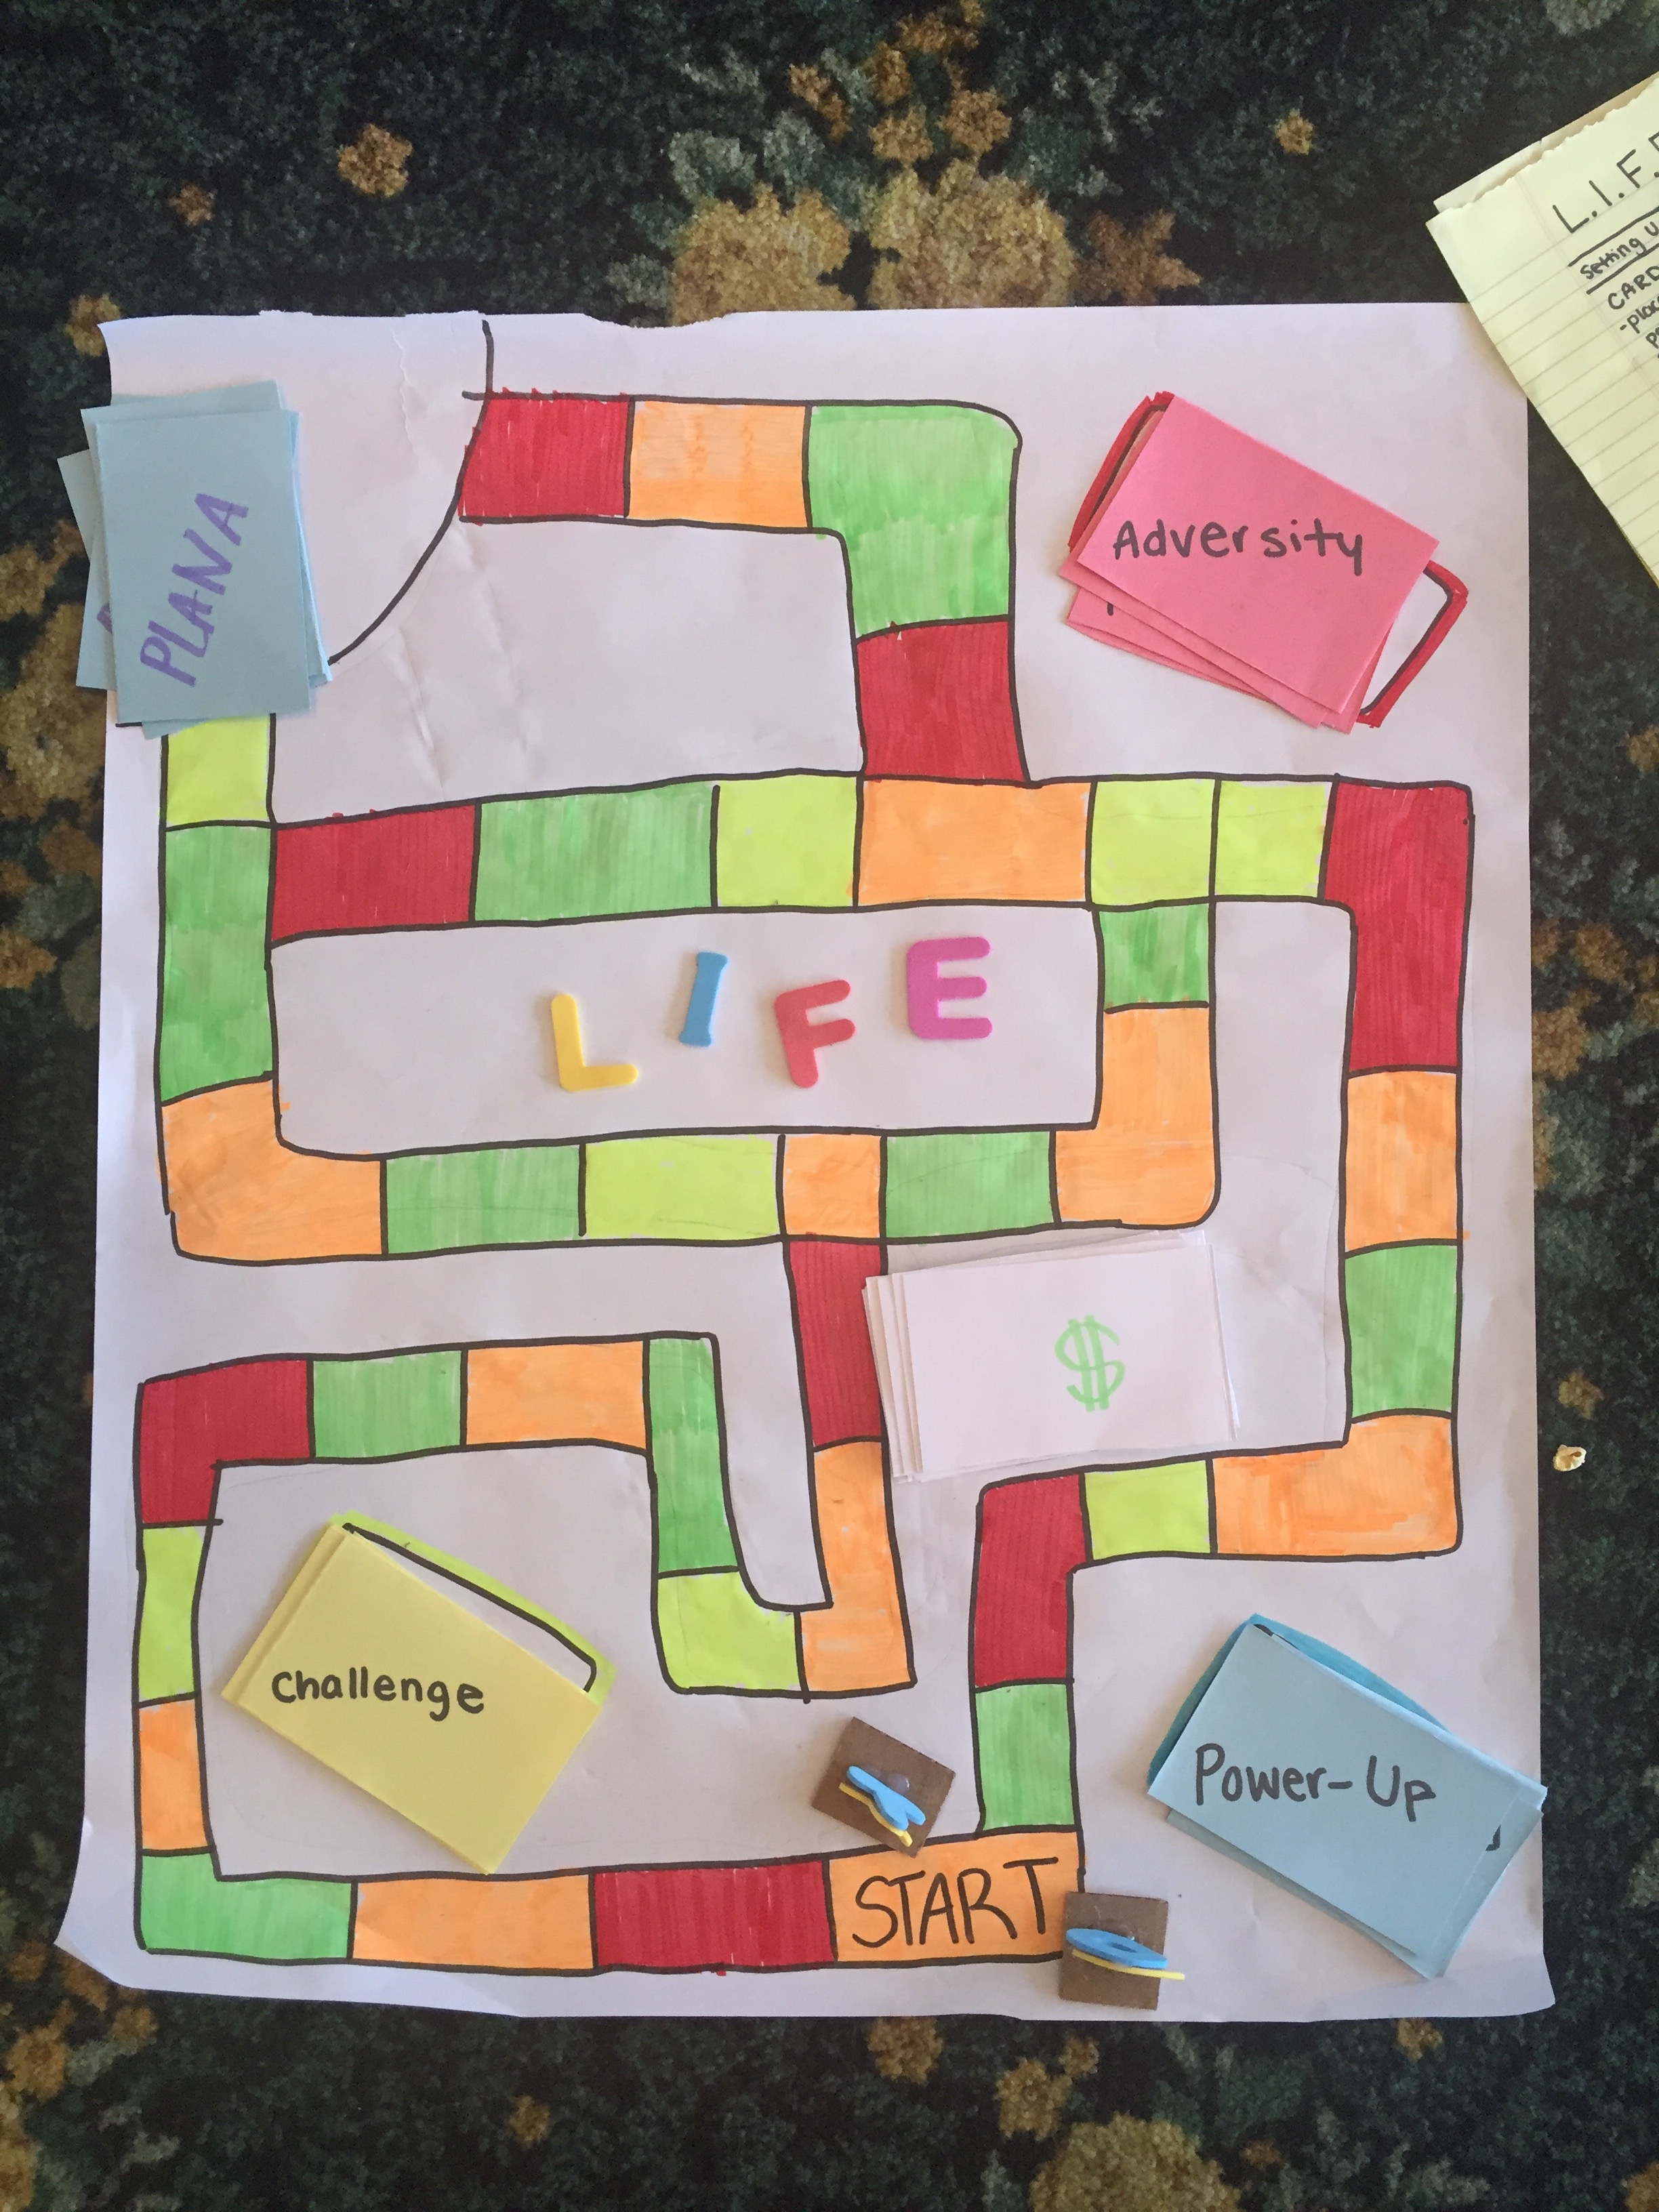 L.I.F.
Setting
CARD
PLAN A
Adversity
LIFE
$
Challenge
Power-Up
START